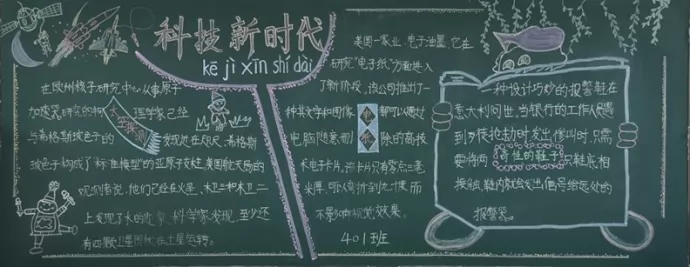 科技新时代
kē jì xīn shí dài
在欧州核子研究中心从事原子
加速器研究的物理学家已经
太空探测
与希格斯玻色子的发现近在咫尺,希格斯
玻色子构成了"标准模型"的亚原子支柱,美国航天局的
观测者说,他们已经在火星、木卫二和木卫二
上发现了水的迹象,科学家发现,至少还
有四颗卫星围绕在土星运转。
美国一家业,电子油墨,它在
研究"电子纸"方面进入
了新阶段,该公司推出了一
种其文字和图像都可以通过
电脑随意删除的高技
术电子卡片,该卡片只有零点三毫
米厚,可以弯折到允许使而
不影响视觉效果。
401班
一种设计巧妙的报警鞋在
意大利问世,当银行的工作人员遇
到歹徒抢劫时发出修叫时,只需
要将两只鞋底相
奇怪的鞋子
接触,鞋内就会发出信号给远处的
报警器。